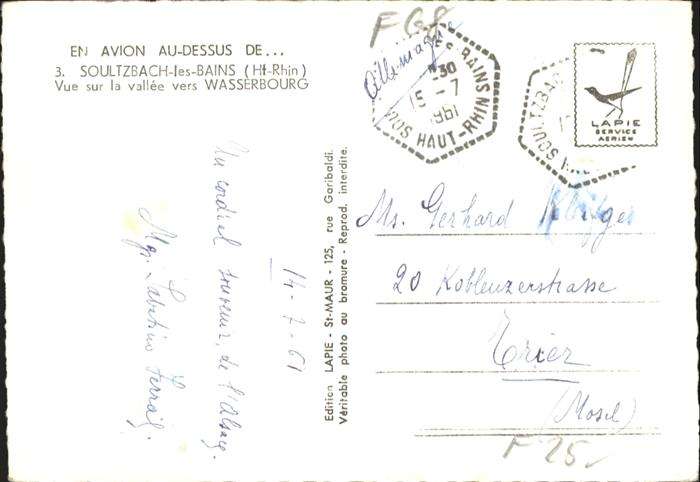 EN AVION AU-DESSUS DE...
3. SOULTZBACH-les-BAINS (Ht-Rhin)
Vue sur la vallée vers WASSERBOURG
F 68
Allemagne
ES BAINS
30
15-7
1961
HAUT-RHIN
SOULTZBAC
LAPIE
SERVICE
AERIEN
Un cordial souvenir de l'Alsace.
Sabatino
14-7-61
Edition LAPIE - St-MAUR - 125, rue Garibaldi.
Véritable photo au bromure - Reprod. interdite.
Ms. Gerhard
20 Koblenzerstrasse
Trier
(Mosel)
F 25